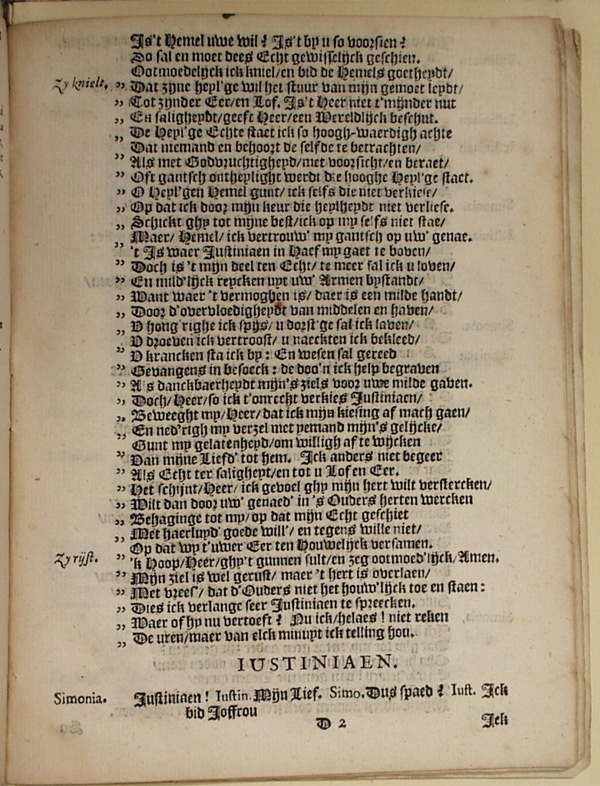 Is't Hemel uwe wil? Is't by u so voorsien?
So sal en moet dees Echt gewisselijck geschien.
Ootmoedelijck ick kniel/en bid de Hemels goetheydt/
Zy knielt. „ Dat zijne heyl'ge wil het stuur van mijn gemoet leydt/
„ Tot zijnder Eer/en Lof. Is't Heer niet t'mijnder nut
„ En saligheydt/geeft Heer/een Wereldlijck beschut.
„ De Heyl'ge Echte staet ick so hoogh-waerdigh achte
Dat niemand en behoort de selfde te betrachten/
„ Als met Godvruchtigheyd/met voorsicht/en beraet/
„ Oft gantsch ontheylight werdt die hooghe Heyl'ge staet.
„ O Heyl'gen Hemel gunt/ick selfs die niet verkiese/
„ Op dat ick door mijn keur die heylheydt niet verliese.
„ Schickt ghy tot mijne best/ick op my selfs niet stae/
„ Maer/ Hemel/ ick vertrouw' my gantsch op uw' genae.
„ 't Is waer Justiniaen in Haef my gaet te boven/
„ Doch is 't mijn deel ten Echt/ te meer sal ick u loven/
„ En mild'lijck reycken uyt uw' Armen bystandt/
„ Want waer 't vermoghen is/ daer is een milde handt/
„ Door d'overvloedigheydt van middelen en haven/
„ V hong'righe ick spijs/ u dorst'ge sal ick laven/
„ V droeven ick vertroost/ u naeckten ick bekleed/
„ V krancken sta ick by: En wesen sal gereed
„ Gevangens in besoeck: de doo'n ick help begraven
„ Als danckbaerheydt mijn's ziels voor uwe milde gaven.
„ Doch/Heer/so ick t'onrecht verkies Justiniaen/
„ Beweeght my/Heer/dat ick mijn kiesing af mach gaen/
„ En ned'righ my verzel niet yemand mijn's gelijcke/
Gunt my gelatenheydt/om willigh af te wijcken
„ Van mijne Liefd' tot hem. Ick anders niet begeer
„ Als Echt ter saligheyt/en tot u Lof en Eer.
„ Het schijnt/Heer/ ick gevoel ghy mijn hert wilt verstercken/
„ Wilt dan door uw' genaed' in 's Ouders herten wercken
„ Behaginge tot my/op dat mijn Echt geschiet
„ Met haerluyd' goede wil'/ en tegens wille niet/
„ Op dat wy t'uwer Eer ten Houwelijck versamen.
Zy rijst. „ 'k Hoop/Heer/ghy't gunnen sult/en zeg ootmoed'lijck/Amen.
„ Mijn ziel is wel gerust/ maer 't hert is overlaen/
„ Met vrees'/ dat d'Ouders niet het houw'lijck toe en staen:
„ Dies ick verlange seer Justiniaen te spreecken.
„ Waer of hy nu vertoeft? Nu ick/helaes! niet reken
„ De uren/maer van elck minuyt ick telling hou.
IUSTINIAEN.
Simonia. Justiniaen! Iustin. Mijn Lief. Simo. Dus spaed? Iust. Ick
bid Joffrou
D 2 Ick